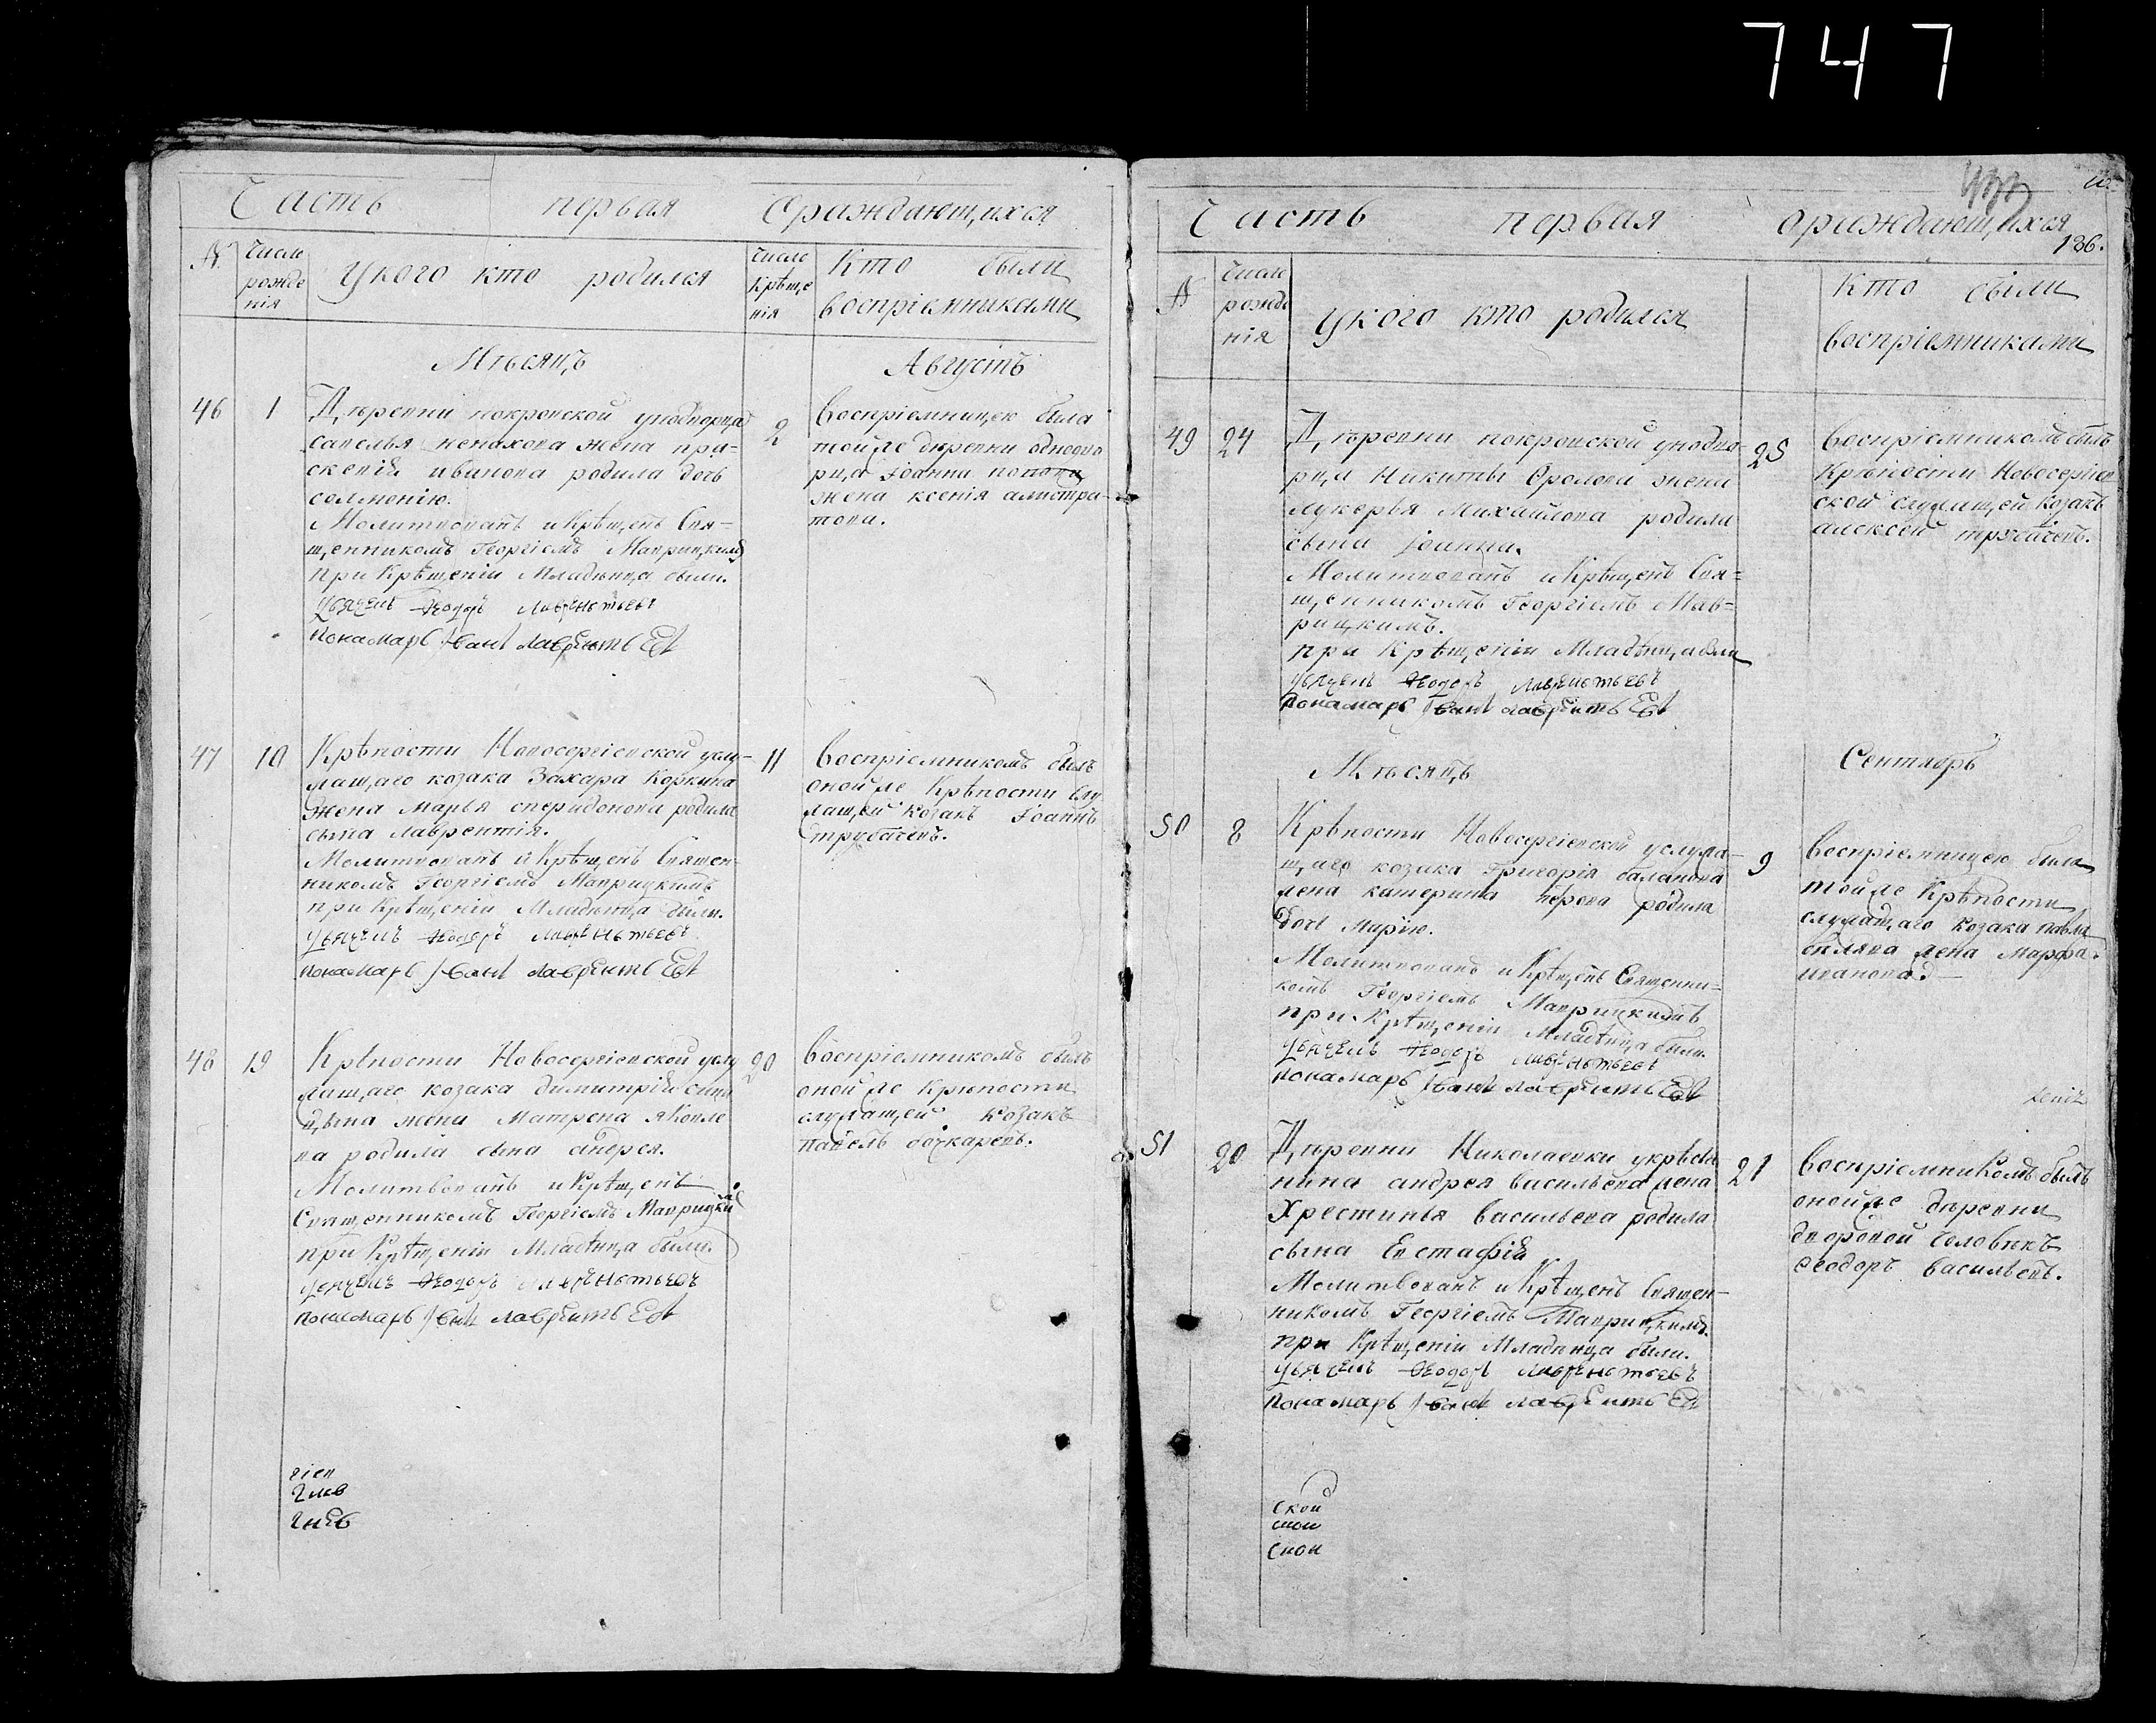 747
Часть первая Ораждающихся
№ число рожде нія У кого кто родился число крѣще нія Кто были воспріемниками
Мѣсяцъ Августъ
46 1 2
Дѣревни покровской уноднорца
савелья женахова жена пра-
скевія иванова родила дочь
соломонію.
Молитвованъ и Крѣщенъ Свя-
щенникомъ Георгіемъ Маврицкимъ
при Крѣщеніи Младѣнца были.
Феодоръ Лаврѣнтьевъ
Пономарь Іванъ лаврентьЕвъ
воспріемницею была
тойже дѣревни однодво
рца Іоанна попова
жена ксенія алистра-
това.
47 10 11
Крѣпости Новосергіевской услу-
жащаго козака Захара Коркина
жена марья спиридонова родила
сына лаврентія.
Молитвованъ и Крѣщенъ Священ-
никомъ Георгіемъ Маврицкимъ
при Крѣщеніи Младѣнца были.
Феодоръ лаврѣнтьевъ
пономарь Іванъ лаврентьЕвъ
воспріемникомъ былъ
онойже Крѣпости слу
жащей козакъ Іоаннъ
трубачевъ.
48 19 20
Крѣпости Новосергіевской услу
жащаго козака димитрія сини
цына жена Матрена яковле
ва родила сына андрея.
Молитвованъ и Крѣщенъ
Священникомъ Георгіемъ Маврицкимъ
при Крѣщеніи Младѣнца были.
Феодоръ лаврѣнтьевъ
пономарь Іванъ лаврентьЕвъ
воспріемникомъ былъ
онойже Крѣпости
служащей козакъ
павелъ бочкаревъ.
гіев
Часть первая ораждающихся
136.
№ число рожде нія У кого кто родился Кто были воспріемниками
49 24 25
Дѣревни покровской уноднo-
рца Никиты Фролова жена
лукерья Михайлова родила
сына іоанна.
Молитвованъ и Крѣщенъ Свя-
щенникомъ Георгіемъ Мав-
рицкимъ.
при Крѣщеніи Младѣнца были
Феодоръ лаврѣнтьевъ
пономарь Іванъ лаврентьЕвъ
воспріемникомъ былъ
Крѣпости Новосергіев
ской служащей козакъ
алексей трубачевъ.
Мѣсяцъ Сентябрь
50 8 9
Крѣпости Новосергіевской услужа-
щаго козака Григорія баланова
жена катерина родила
дочь марію.
Молитвованъ и Крѣщенъ Священни-
комъ Георгіемъ Маврицкимъ
при Крѣщеніи Младѣнца были.
Феодоръ лаврѣнтьевъ
пономарь Іванъ лаврентьЕвъ
воспріемницею была
тойже Крѣпости
служащаго козака павла
жена марфа
иванова.
51 20 21
Дѣревни Николаевки укрѣстья
нина андрея васильева жена
Христинья васильева родила
сына Евстафія
Молитвованъ и Крѣщенъ Священ-
никомъ Георгіемъ Маврицкимъ.
при Крѣщеніи Младѣнца были.
Феодоръ лаврѣнтьевъ
пономарь Іванъ лаврентьЕвъ
воспріемникомъ былъ
онойже дѣревни
дворовой человѣкъ
феодоръ васильевъ.
ской